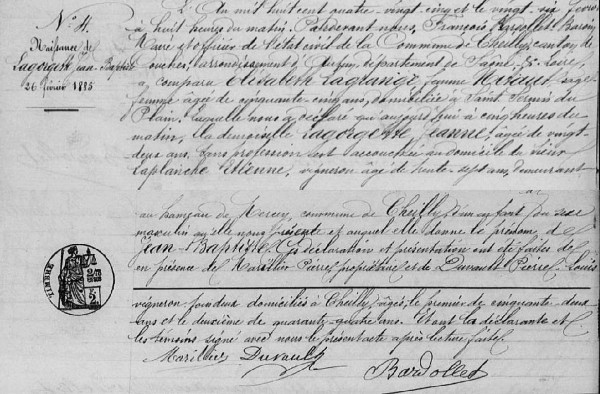 N° 4
Naissance de
Lagorgette Jean Baptiste
26 février 1885
L'An mil huit cent quatre vingt cinq et le vingt six février
à huit heures du matin. Pardevant nous, François Bardollet
Maire et officier de l'état civil de la Commune de Cheilly, canton de
Couches, arrondissement d'Autun, département de Saône & Loire,
a comparu Elisabeth Lagrange femme sage
femme âgée de cinquante cinq ans, domiciliée à Saint Sernin du
Plain, laquelle nous a déclaré que aujourd'hui à cinq heures du
matin, la demoiselle Lagorgette Jeanne, âgée de vingt-
deux ans, sans profession est accouchée au domicile de sieur
Laplanche Etienne, vigneron âgé de trente-sept ans, demeurant
au hameau de Mercey, commune de Cheilly, d'un enfant du sexe
masculin qu'elle nous présente et auquel elle donne le prénom de
Jean-Baptiste. Les déclaration et présentation ont été faites
en présence de Pierre, propriétaire et de Duvault Pierre Louis
TIMBRE
vigneron, tous deux domiciliés à Cheilly, âgés, le premier de cinquante-deux
ans et le deuxième de quarante-quatre ans. Et ont la déclarante et
les témoins signé avec nous le présent acte après lecture faite.
Duvault
Bardollet